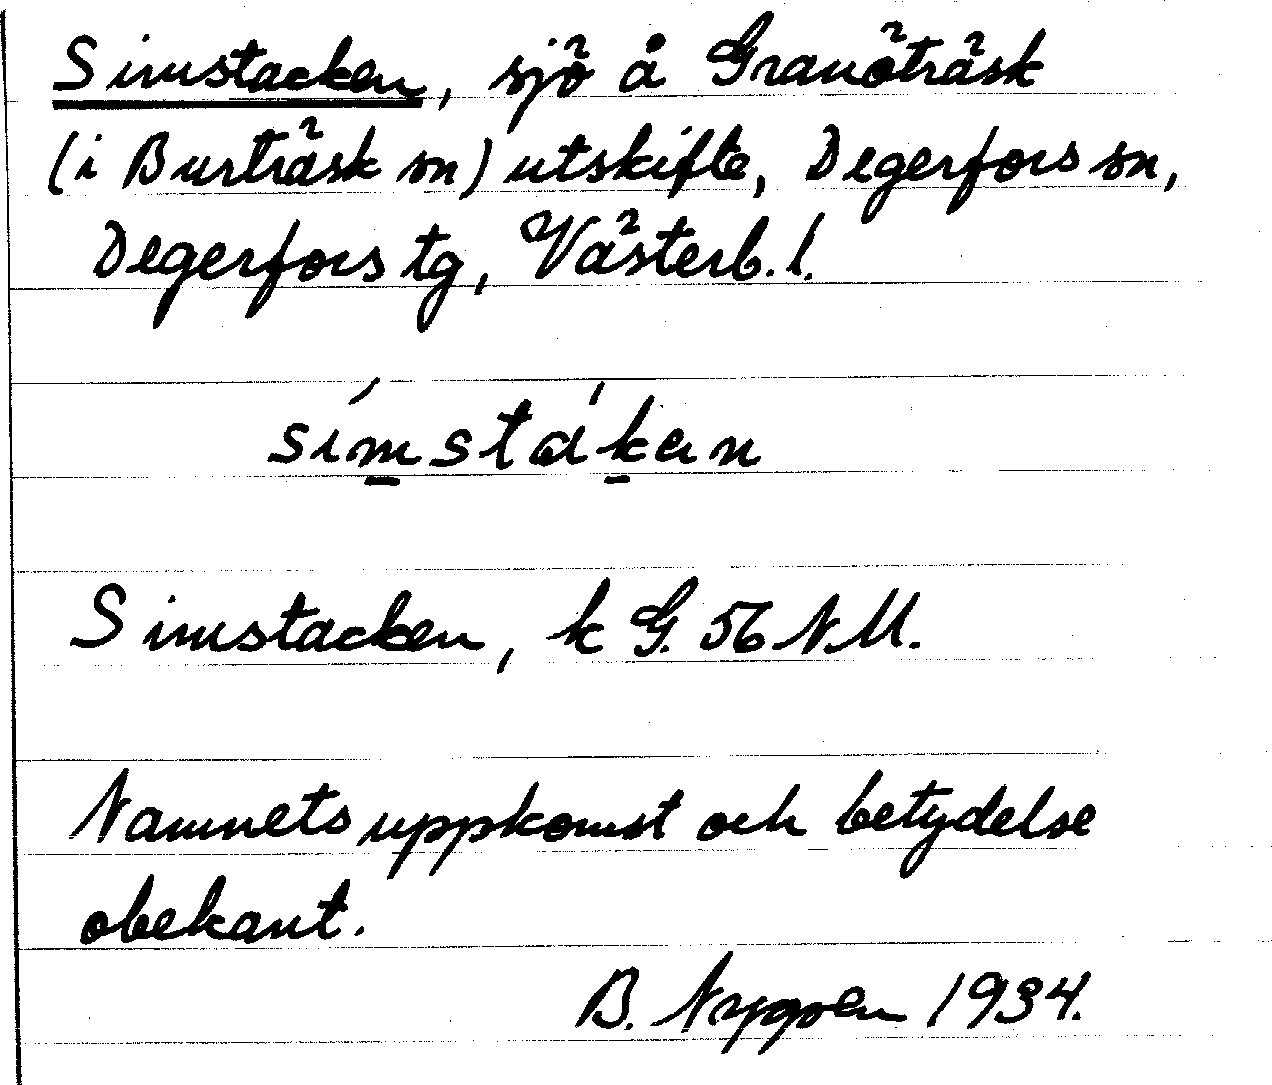 Simstacken, sjö å Granöträsk
(i Burträsk sn) utskifte, Degerfors sn,
Degerfors tg, Västerb. l.
sím̲sták̲en
Simstacken, k G. 56 NM.
Namnets uppkomst och betydelse
obekant.
B. Nygren 1934.